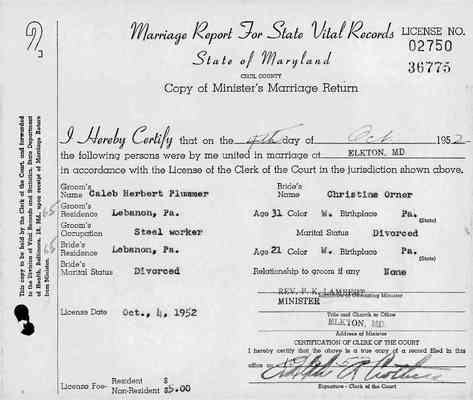 Marriage Report For State Vital Records
LICENSE NO.
State of Maryland
02750
CECIL COUNTY
36775
Copy of Minister's Marriage Return
I Hereby Certify that on the 4th day of Oct 1952
the following persons were by me united in marriage at ELKTON, MD
in accordance with the License of the Clerk of the Court in the jurisdiction shown above.
Groom's Name Caleb Herbert Plummer Bride's Name Christine Orner
Groom's Residence Lebanon, Pa. Age 31 Color W. Birthplace Pa. (State)
Groom's Occupation Steel worker Marital Status Divorced
Bride's Residence Lebanon, Pa. Age 21 Color W. Birthplace Pa. (State)
Bride's Marital Status Divorced Relationship to groom if any None
REV. F. K. LAMBERT
Signature of Officiating Minister
MINISTER
License Date Oct., 4, 1952
Title and Church or Office
ELKTON, MD.
Address of Minister
CERTIFICATION OF CLERK OF THE COURT
I hereby certify that the above is a true copy of a record filed in this
office on
License Fee- Resident $
Non-Resident $5.00
Signature - Clerk of the Court
This copy to be held by the Clerk of the Court, and forwarded
to the Division of Vital Records and Statistics, State Department
of Health, Baltimore, 18, Md., upon receipt of Marriage Return
from Minister.
65
65